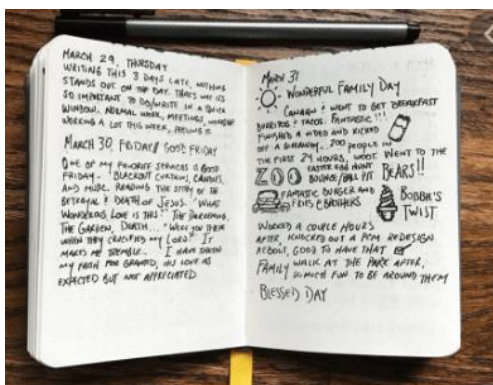 MARCH 29, THURSDAY
WRITING THIS 3 DAYS LATE, NOTHING
STANDS OUT ON THE DAY. THAT'S WHY IT'S
SO IMPORTANT TO DO/WRITE IN A QUICK
WINDOW. NORMAL WORK, MEETINGS,
WORKING A LOT THIS WEEK, FEELING IT
MARCH 30, FRIDAY/ GOOD FRIDAY
ONE OF MY FAVORITE SERVICES IS GOOD
FRIDAY. BLACKOUT CURTAIN, CANDLES,
AND MUSIC. READING THE STORY OF THE
BETRAYAL & DEATH OF JESUS. "WHAT
WONDEROUS LOVE IS THIS" THE DARKENING,
THE GARDEN, DEATH... "WERE YOU THERE
WHEN THEY CRUCIFIED MY LORD?" IT
MAKES ME TREMBLE... I HAVE TAKEN
MY FAITH FOR GRANTED, HIS LOVE AS
EXPECTED BUT NOT APPRECIATED
MARCH 31
WONDERFUL FAMILY DAY
& I WENT TO GET BREAKFAST
BURRITOS & TACOS. FANTASTIC!!!
FINISHED A VIDEO AND KICKED
OFF A GIVEAWAY. 200 PEOPLE IN
THE FIRST 24 HOURS, WOOT. WENT TO THE
ZOO
EASTER EGG HUNT
BOUNCE/BALL PIT
BEARS!!
FANTASTIC BURGER AND
FRIES @ BROTHERS
BOBBA'S
TWIST
WORKED A COUPLE HOURS
AFTER, KNOCKED OUT A PCM REDESIGN
REBUILT, GOOD TO HAVE THAT
FAMILY WALK AT THE PARK AFTER,
SO MUCH FUN TO BE AROUND THEM
BLESSED DAY